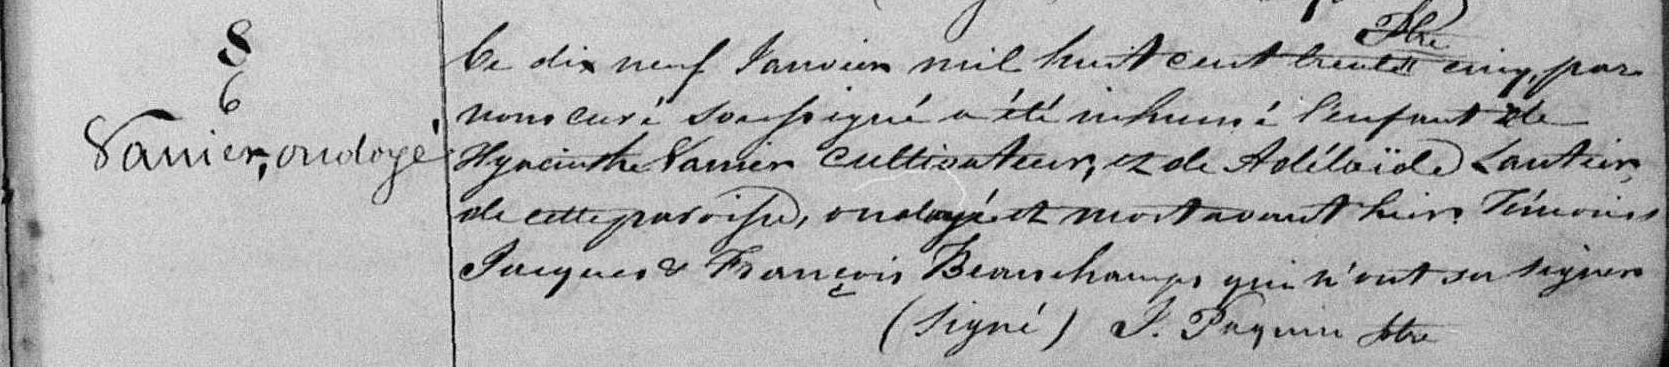 S
6
Vanier, ondoyé
Ptre
Le dix neuf Janvier mil huit cent trente cinq, par
nous curé soussigné a été inhumé l'enfant de
Hyacinthe Vanier cultivateur, et de Adélaïde Lautier,
de cette paroisse, ondoyé et mort avant hier. Témoins
Jacques & François Beauchamps qui n'ont su signer
(signé) J. Paquin ptre